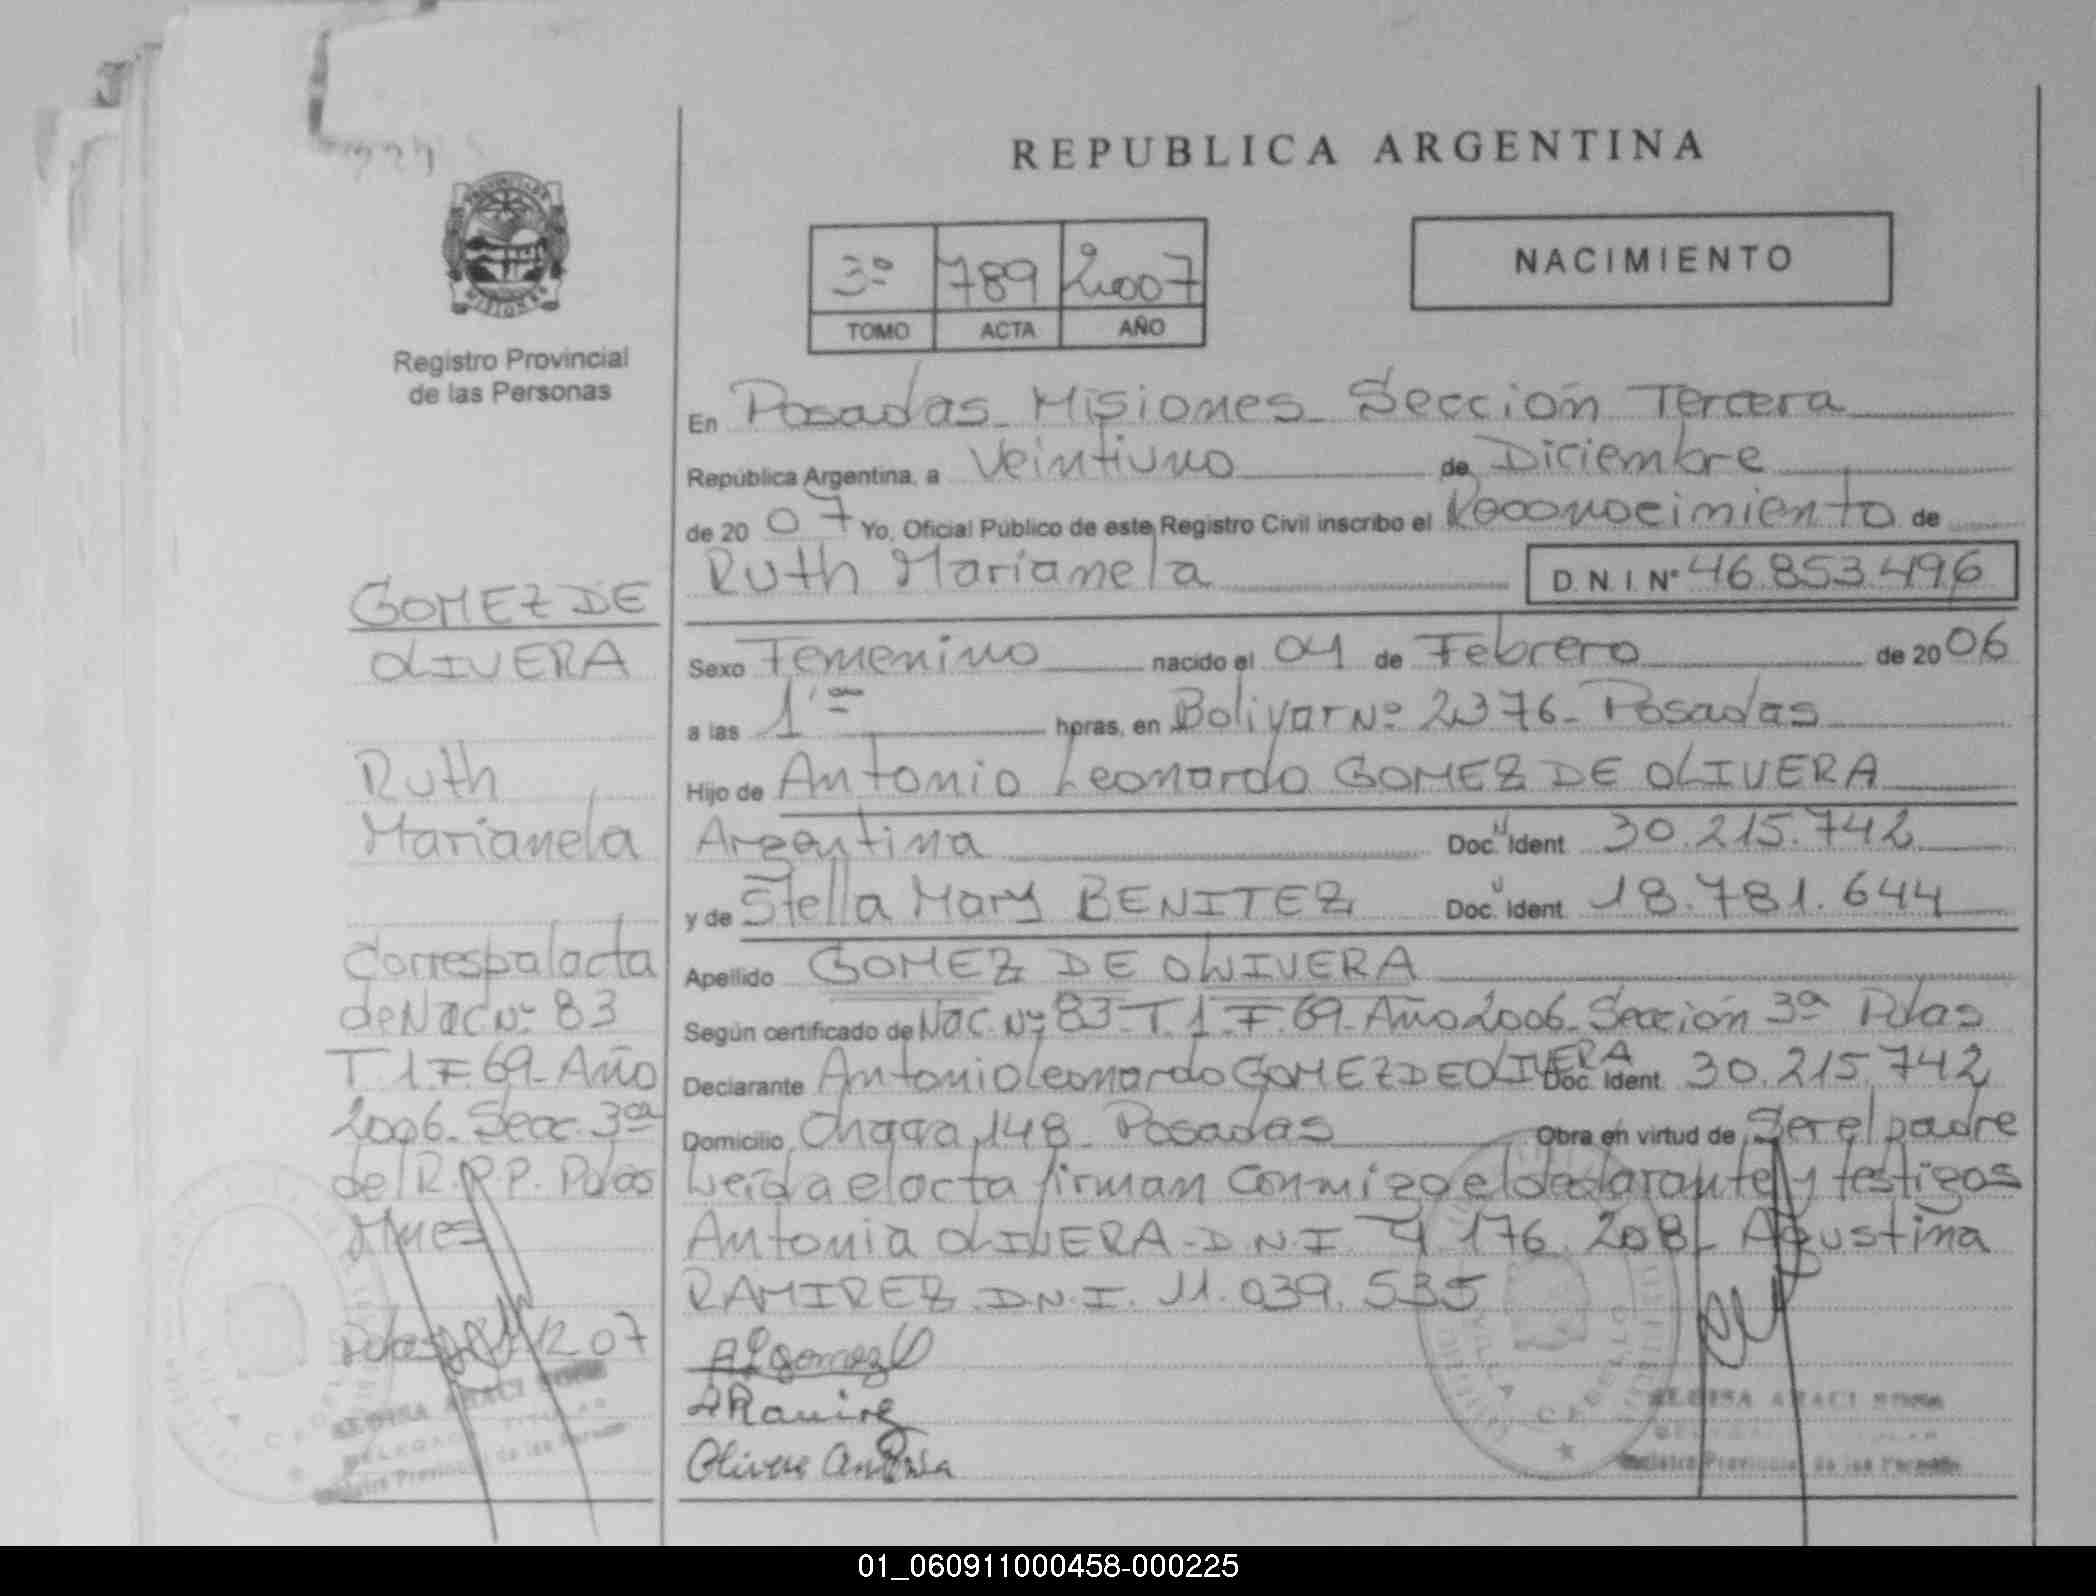 REPUBLICA ARGENTINA
3º 789 2007
TOMO ACTA AÑO
NACIMIENTO
Registro Provincial
de las Personas
GOMEZ DE
OLIVERA
Ruth
Marianela
Corresp al acta
de Nac Nº 83
T. 1 F. 69 - Año
2006 - Secc. 3ª
del R.P.P. Pdas
Mnes
12 07
En Posadas Misiones Sección Tercera
República Argentina, a Veintiuno de Diciembre
de 20 07 Yo, Oficial Público de este Registro Civil inscribo el Reconocimiento de
Ruth Marianela D.N.I. Nº 46.853.496
Sexo Femenino nacido el 04 de Febrero de 20 06
a las 1 horas, en Bolivar Nº 2376 - Posadas
Hijo de Antonio Leonardo GOMEZ DE OLIVERA
Argentina Doc. Ident 30.215.742
y de Stella Mary BENITEZ Doc. Ident 18.781.644
Apellido GOMEZ DE OLIVERA
Según certificado de Nac. Nº 83 T. 1 F. 69 - Año 2006 - Sección 3ª Pdas
Declarante Antonio Leonardo GOMEZ DE OLIVERA Doc. Ident 30.215.742
Domicilio Chacra 148 - Posadas Obra en virtud de Ser el padre
Leída el acta firman conmigo el declarante y testigos
Antonia OLIVERA - D.N.I 4.176.208 - Agustina
RAMIREZ D.N.I. 11.039.535
ALgomezO
ARamirez
Olivera Antonia
01_060911000458-000225